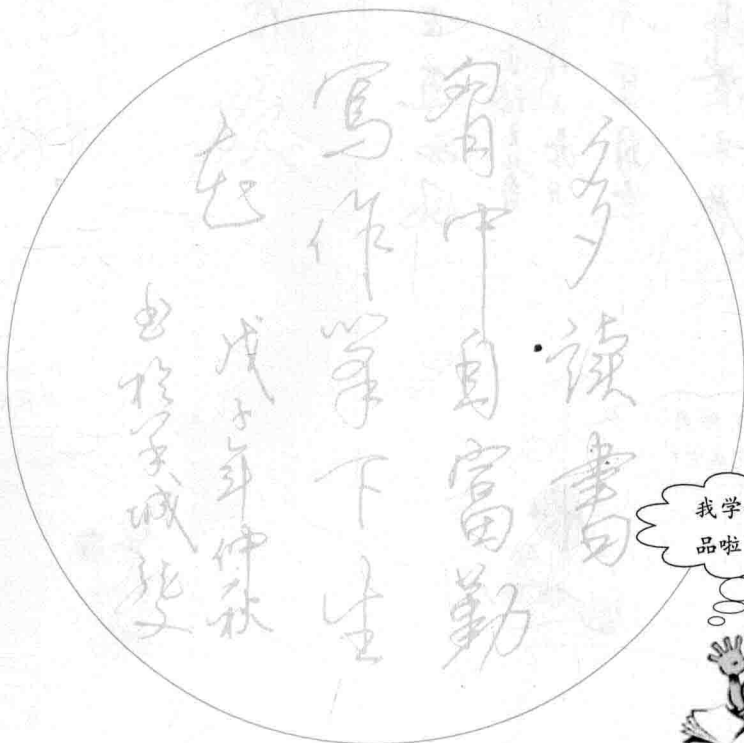 多讀書
胷中自富勤
寫作筆下生
花
戊子年仲秋
书於羊城
我学
品啦